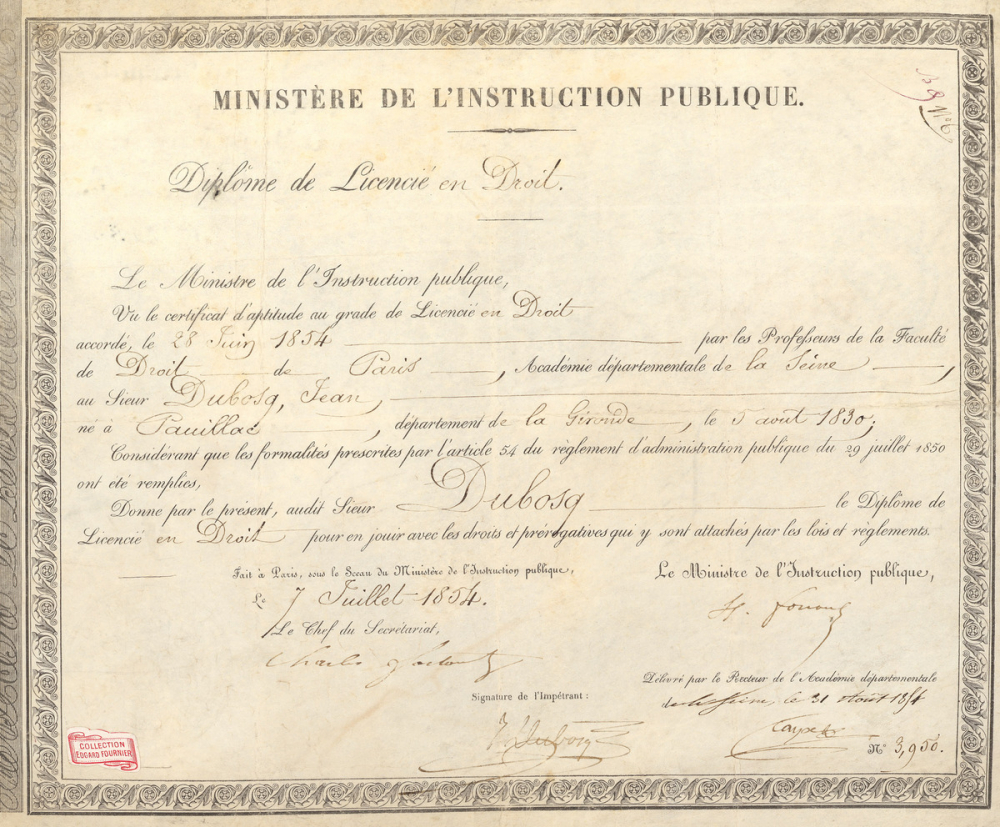 MINISTÈRE DE L'INSTRUCTION PUBLIQUE.
Diplôme de Licencié en Droit.
Le Ministre de l'Instruction publique,
Vu le certificat d'aptitude au grade de Licencié en Droit
accordé, le 28 Juin 1854 par les Professeurs de la Faculté
de Droit de Paris, Académie départementale de la Seine,
au Sieur Dubosq, Jean,
né à Pauillac, département de la Gironde, le 5 août 1830;
Considérant que les formalités prescrites par l'article 54 du règlement d'administration publique du 29 juillet 1850
ont été remplies,
Donne par le présent, audit Sieur Dubosq le Diplôme de
Licencié en Droit pour en jouir avec les droits et prérogatives qui y sont attachés par les lois et règlements.
Fait à Paris, sous le Sceau du Ministère de l'Instruction publique,
Le 7 Juillet 1854.
Le Chef du Secrétariat,
Charles
Le Ministre de l'Instruction publique,
H. Fortoul
Délivré par le Recteur de l'Académie départementale
de la Seine, le 31 Août 1854
Signature de l'Impétrant :
Dubosq
N° 3,950.
COLLECTION
EDGARD FOURNIER